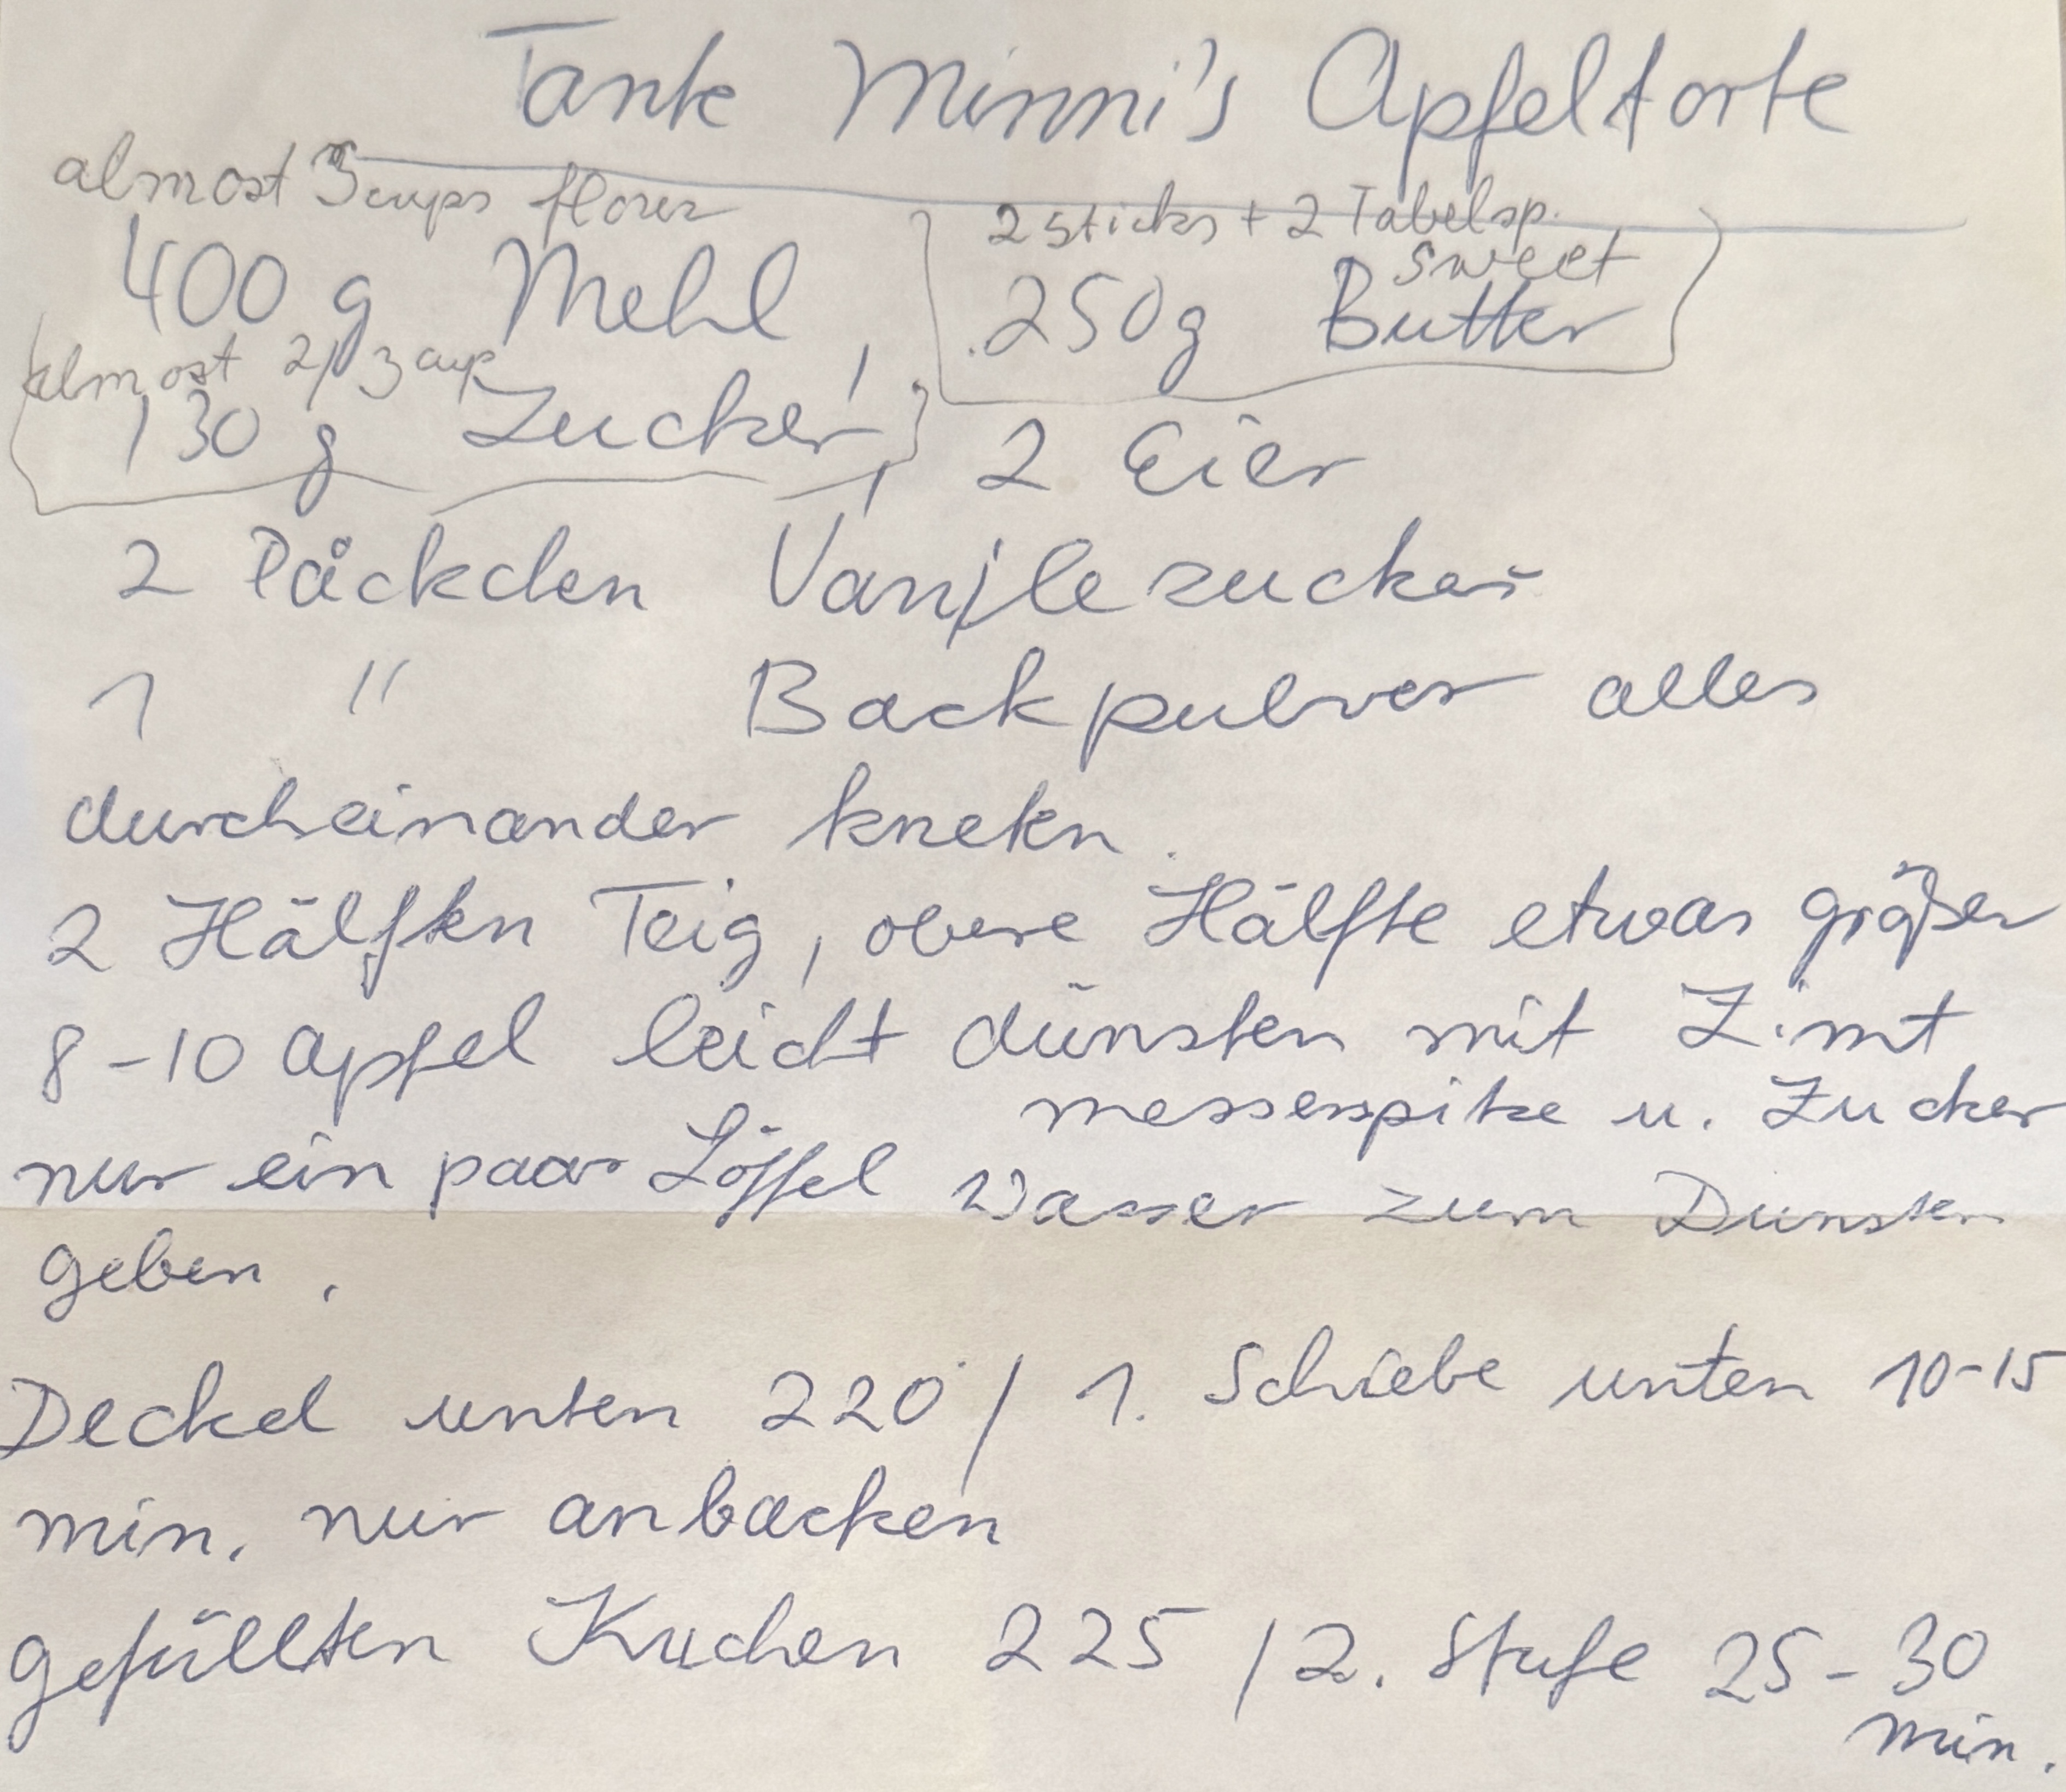 Tante Minni's Apfeltorte
almost 3 cups flour
2 Sticks + 2 Tabelsp.
sweet
400 g Mehl, 250g Butter
almost 2/3 cup
130 g Zucker, 2 Eier
2 Päckchen Vanjlezucker
1 " Backpulver alles
durcheinander kneten.
2 Hälften Teig, obere Hälfte etwas größer
8-10 Apfel leicht dünsten mit Zimt
messerspitze u. Zucker
nur ein paar Löffel Wasser zum Dunsten
geben.
Deckel unten 220° / 1. Schiebe unten 10-15
min. nur anbacken
gefüllten Kuchen 225 / 2. Stufe 25-30
min.